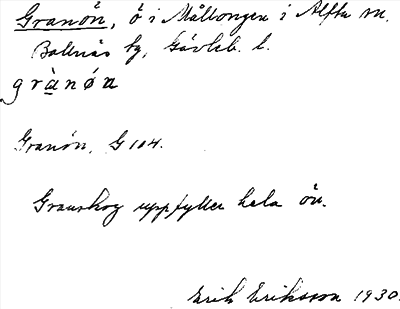 Granön, ö i Mållongen i Alfta sn.
Bollnäs tg, Gävleb. l.
grànøn
Granön, G 104.
Granskog uppfyller hela ön.
Erik Eriksson 1930.